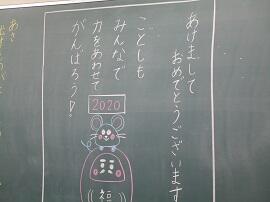 あけまして
おめでとうございます
ことしも
みんなで
力をあわせて
がんばろう!
2020
福
あさ